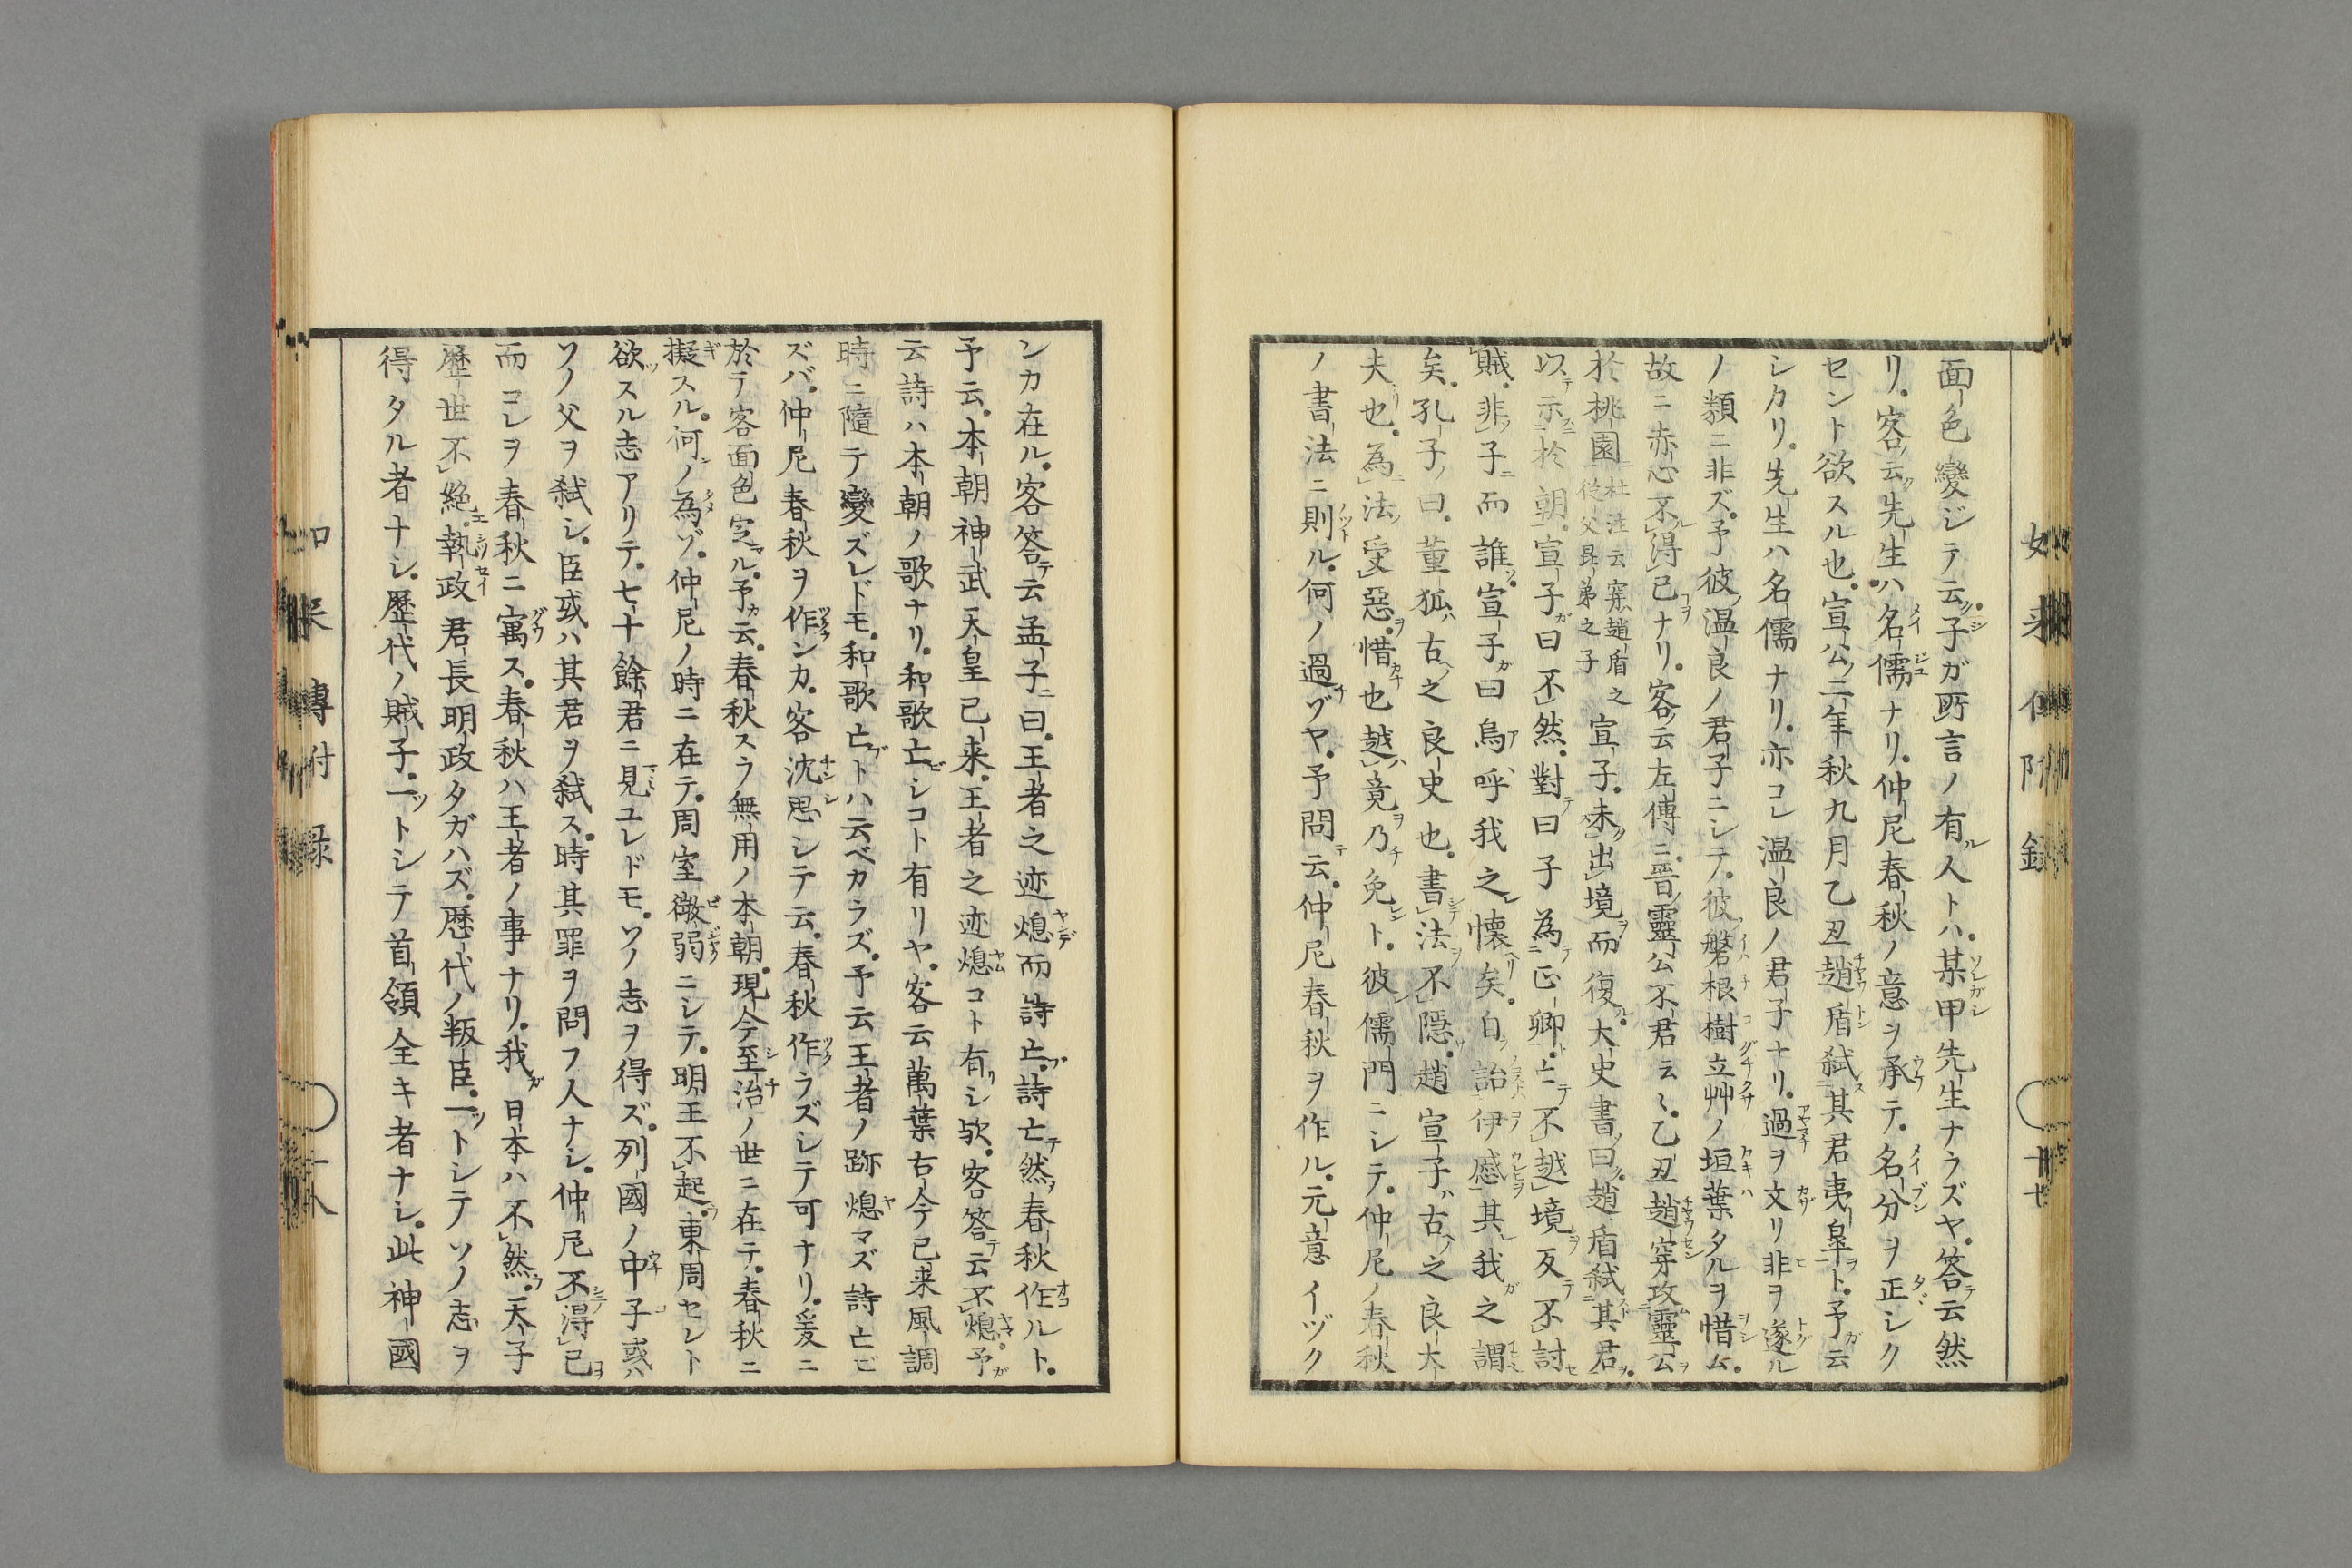 面色變ジテ云子ガ所言ノ有人トハ某甲先生ナラズヤ答云然
リ客云先生ハ名儒ナリ仲尼春秋ノ意ヲ承テ名分ヲ正シク
セント欲スル也宣公二年秋九月乙丑趙盾弑其君夷皐ト予云
シカリ先生ハ名儒ナリ亦コレ温良ノ君子ナリ過ヲ文リ非ヲ遂ル
ノ類ニ非ズ予彼温良ノ君子ニシテ彼磐根樹立艸ノ垣葉タルヲ惜ム
故ニ赤心不得已ナリ客云左傳ニ晋靈公不君云々乙丑趙穿攻靈公
於桃園
杜注云穿趙盾之
從父昆弟之子
宣子未出境而復大史書曰趙盾弑其君
以示於朝宣子曰不然對曰子為正卿亡不越境反不討
賊非子而誰宣子曰烏呼我之懐矣自詒伊慼其我之謂
矣孔子曰董狐古之良史也書法不隠趙宣子古之良大
夫也為法受惡惜也越竟乃免ト彼儒門ニシテ仲尼ノ春秋
ノ書法ニ則ル何ノ過グヤ予問云仲尼春秋ヲ作ル元意イヅク
ンカ在ル客答云孟子曰王者之迹熄而詩亡詩亡然春秋作ルト
予云本朝神武天皇已来王者之迹熄コト有シ欤客答云不熄予
云詩ハ本朝ノ歌ナリ和歌亡シコト有リヤ客云萬葉古今已来風調
時ニ隨テ變ズレドモ和歌亡トハ云ベカラズ予云王者ノ跡熄マズ詩亡ビ
ズバ仲尼春秋ヲ作ンカ客沈思シテ云春秋作ラズシテ可ナリ爰ニ
於テ客面色定ル予云春秋スラ無用ノ本朝現今至治ノ世ニ在テ春秋ニ
擬スル何ノ為ゾ仲尼ノ時ニ在テ周室微弱ニシテ明王不起東周セント
欲スル志アリテ七十餘君ニ見ユレドモソノ志ヲ得ズ列國ノ中子或ハ
ソノ父ヲ弑シ臣或ハ其君ヲ弑ス時其罪ヲ問フ人ナシ仲尼不得已
而コレヲ春秋ニ寓ス春秋ハ王者ノ事ナリ我日本ハ不然天子
歷世不絶執政君長明政タガハズ歷代ノ叛臣一トシテソノ志ヲ
得タル者ナシ歷代ノ賊子一トシテ首領全キ者ナシ此神國